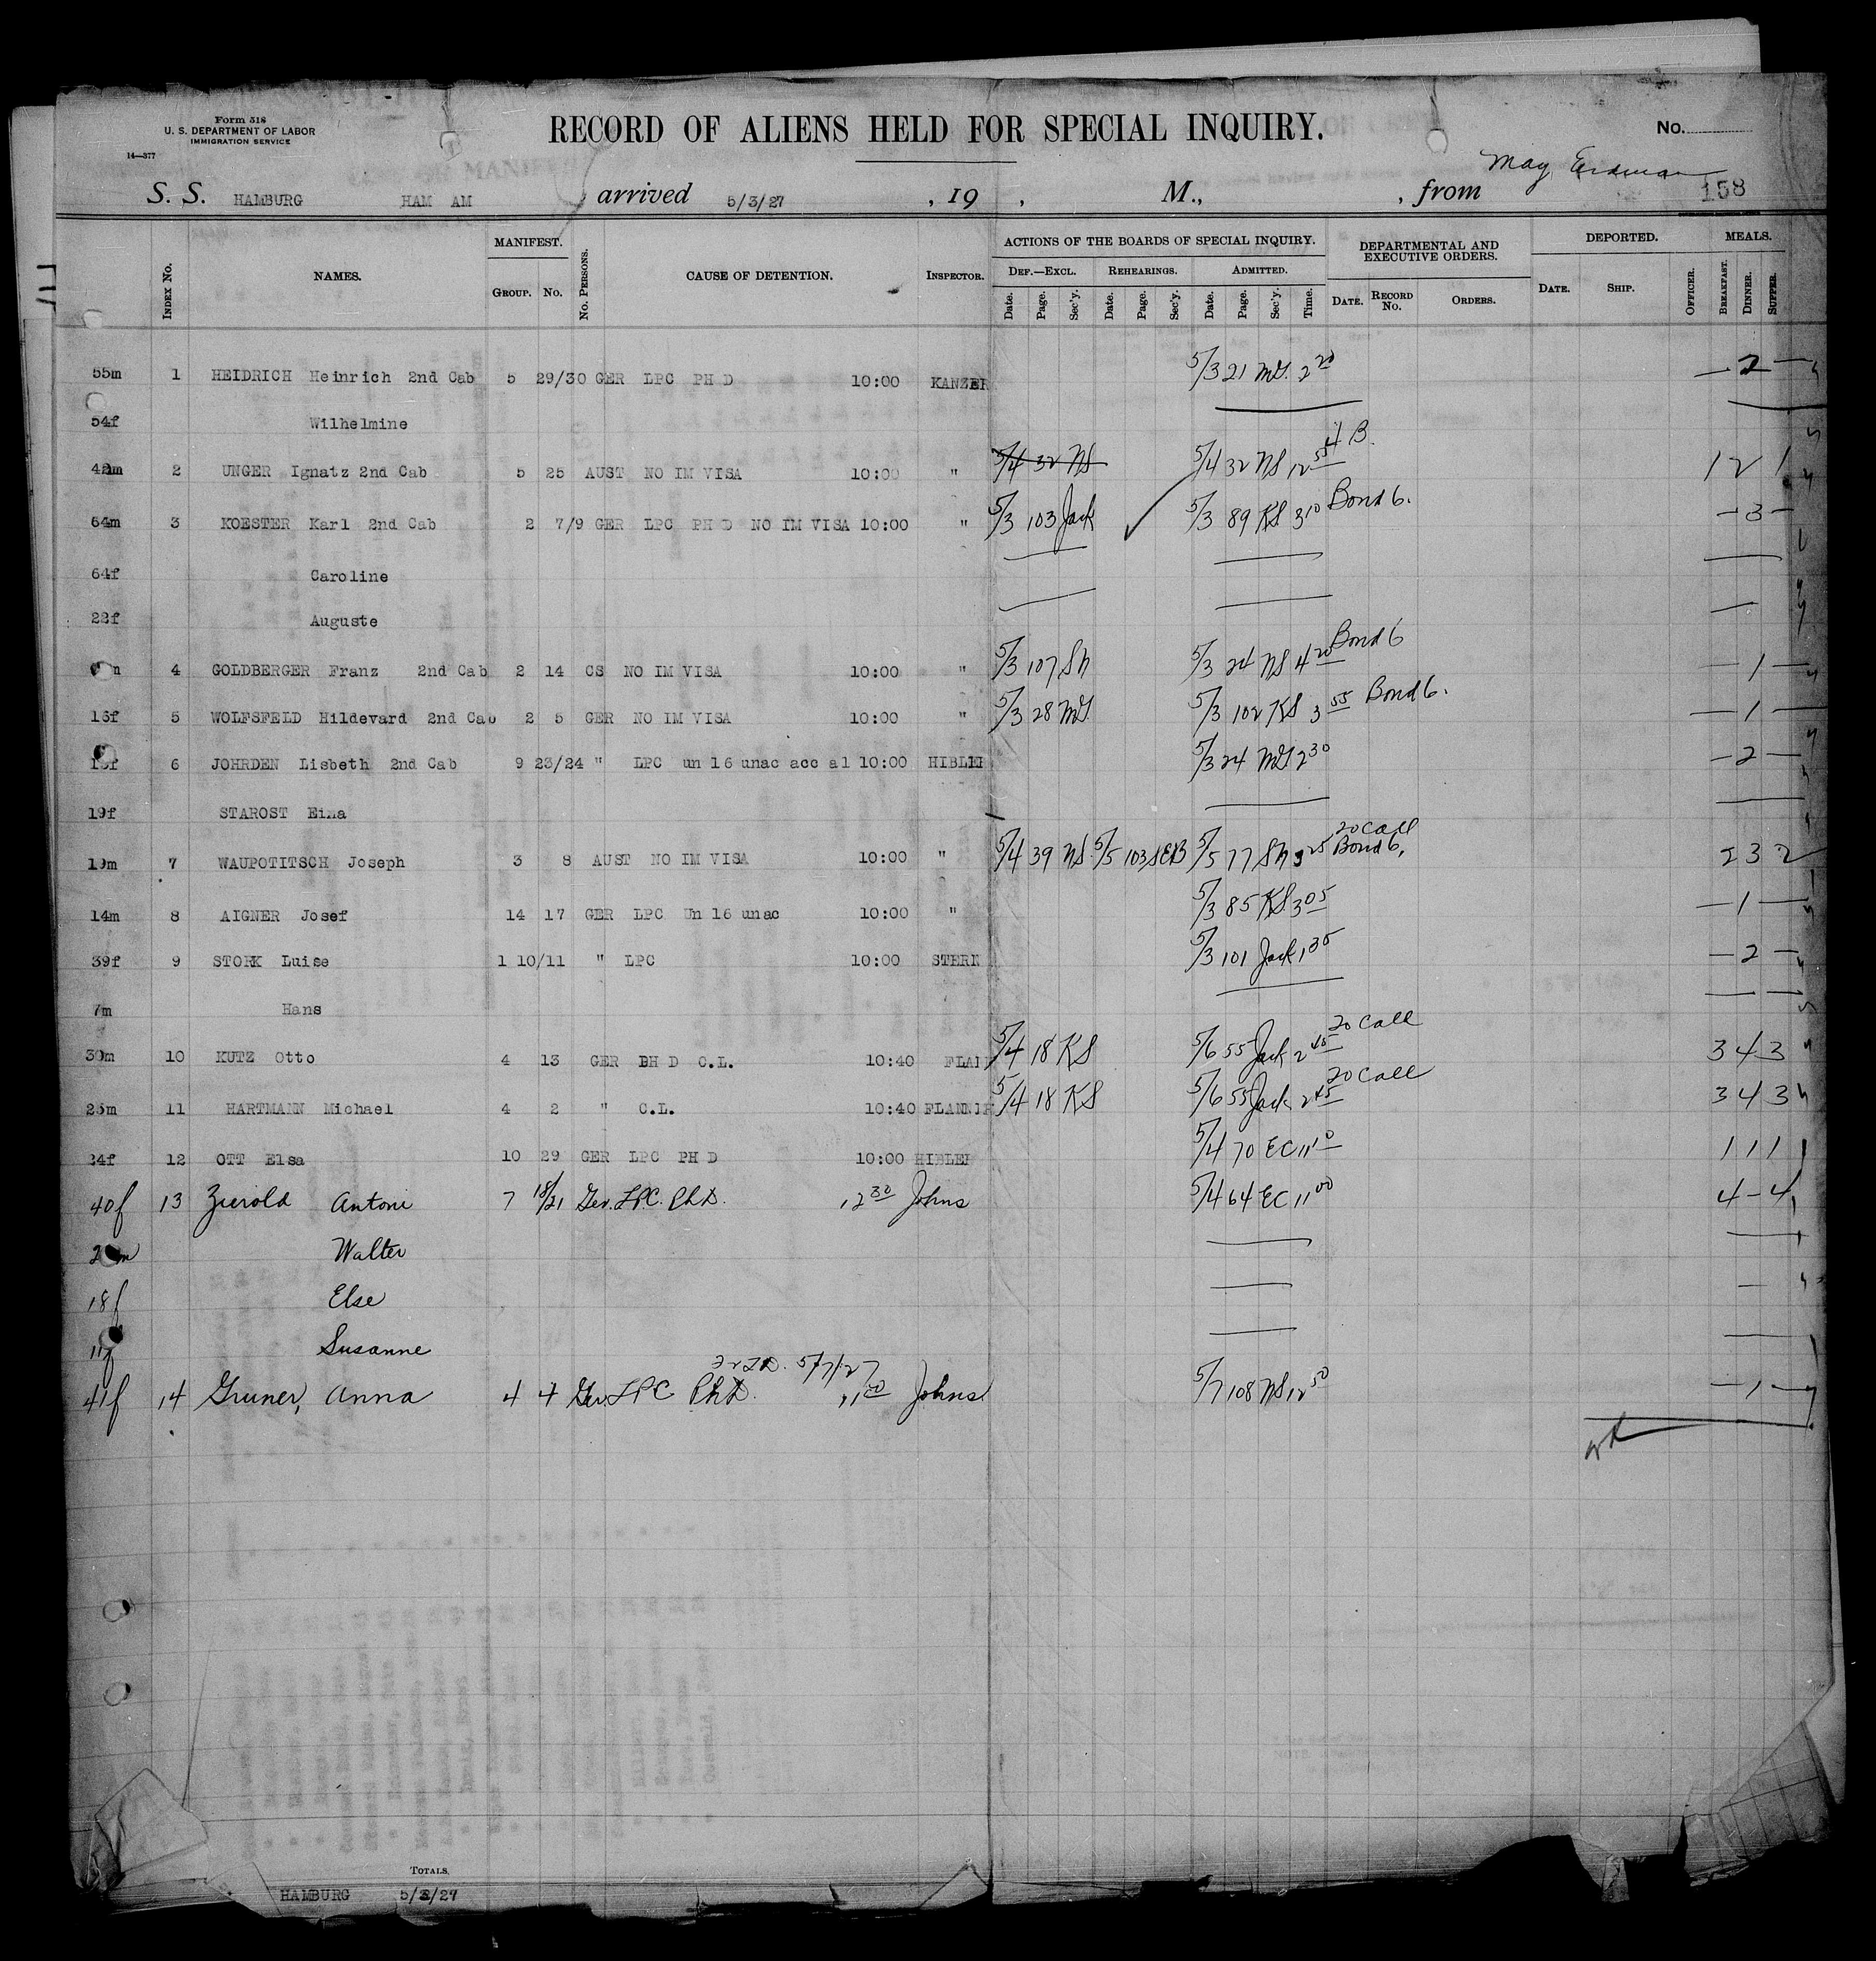 Form 518
U. S. DEPARTMENT OF LABOR
IMMIGRATION SERVICE
14—377
RECORD OF ALIENS HELD FOR SPECIAL INQUIRY.
No.
May Erdman
S. S. HAMBURG HAM AM , arrived 5/3/27 , 19 , M., , from 158
INDEX No. NAMES. MANIFEST. GROUP. No. No. PERSONS. CAUSE OF DETENTION. INSPECTOR. ACTIONS OF THE BOARDS OF SPECIAL INQUIRY. DEF.—EXCL. Date. Page. Sec'y. REHEARINGS. Date. Page. Sec'y. ADMITTED. Date. Page. Sec'y. Time. DEPARTMENTAL AND EXECUTIVE ORDERS. DATE. RECORD No. ORDERS. DEPORTED. DATE. SHIP. OFFICER. MEALS. BREAKFAST. DINNER. SUPPER.
55m 1 HEIDRICH Heinrich 2nd Cab 5 29/30 GER LPC PH D 10:00 KANZER 5/3 21 MG. 2 20 — 2 —
54f Wilhelmine
42m 2 UNGER Ignatz 2nd Cab 5 25 AUST NO IM VISA 10:00 " 5/4 32 NS 5/4 32 NS 12 55 4 B. 1 2 1
64m 3 KOESTER Karl 2nd Cab 2 7/9 GER LPC PH D NO IM VISA 10:00 " 5/3 103 Jack 5/3 89 KS 3 10 Bond 6. — 3 —
64f Caroline
22f Auguste
4 GOLDBERGER Franz 2nd Cab 2 14 CS NO IM VISA 10:00 " 5/3 107 SN 5/3 24 NS 4 20 Bond 6 — 1 —
16f 5 WOLFSFELD Hildevard 2nd Cab 2 5 GER NO IM VISA 10:00 " 5/3 28 MG. 5/3 102 KS 3 55 Bond 6. — 1 —
6 JOHRDEN Lisbeth 2nd Cab 9 23/24 " LPC un 16 unac acc al 10:00 HIBLER 5/3 24 MG 2 30 — 2 —
19f STAROST
19m 7 WAUPOTITSCH Joseph 3 8 AUST NO IM VISA 10:00 " 5/4 39 NS. 5/5 103 SEB 5/5 77 SN 3 25 20 Call Bond 6. 2 3 2
14m 8 AIGNER Josef 14 17 GER LPC Un 16 unac 10:00 " 5/3 85 KS. 3 05 — 1 —
39f 9 STORK Luise 1 10/11 " LPC 10:00 STERN 5/3 101 Jack 1 35 — 2 —
7m Hans
30m 10 KUTZ Otto 4 13 GER PH D C.L. 10:40 FLAN 5/4 18 KS 5/6 55 Jack 2 45 20 Call 3 4 3
25m 11 HARTMANN Michael 4 2 " C.L. 10:40 FLANNIR 5/4 18 KS 5/6 55 Jack 2 45 20 Call 3 4 3
24f 12 OTT Elsa 10 29 GER LPC PH D 10:00 HIBLER 5/4 70 EC 11 10 1 1 1
40f 13 Zierold Antonie 7 18/21 Ger. LPC. PhD. 12 30 Johns 5/4 64 EC 11 00 4 — 4
Walter
18f Else
11f Susanne
5/7/27
41f 14 Gruner, Anna 4 4 Ger. LPC PhD. 11 00 Johns 5/7 108 NS 12 50 — 1 —
TOTALS.
HAMBURG 5/3/27